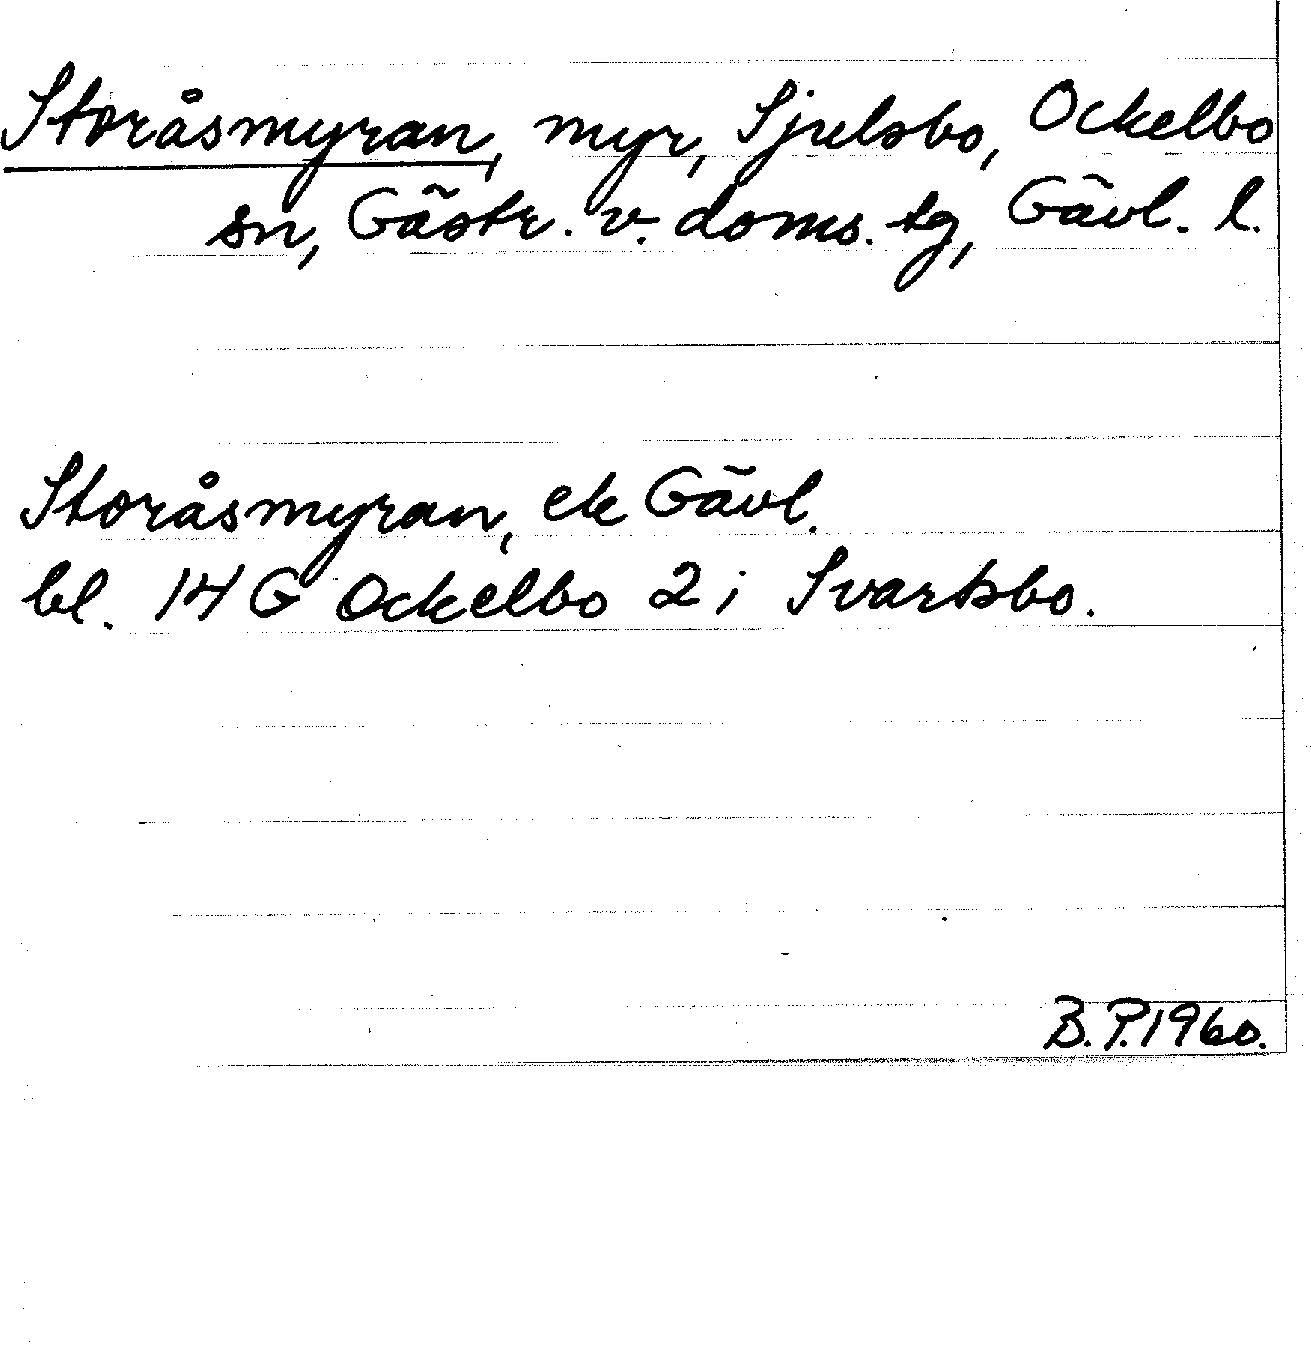 Storåsmyran, myr, Sjulsbo, Ockelbo
sn, Gästr. v. doms. tg, Gävl. l.
Storåsmyran, ek Gävl.
bl. 14 G Ockelbo 2 i Svartsbo.
B. P. 1960.